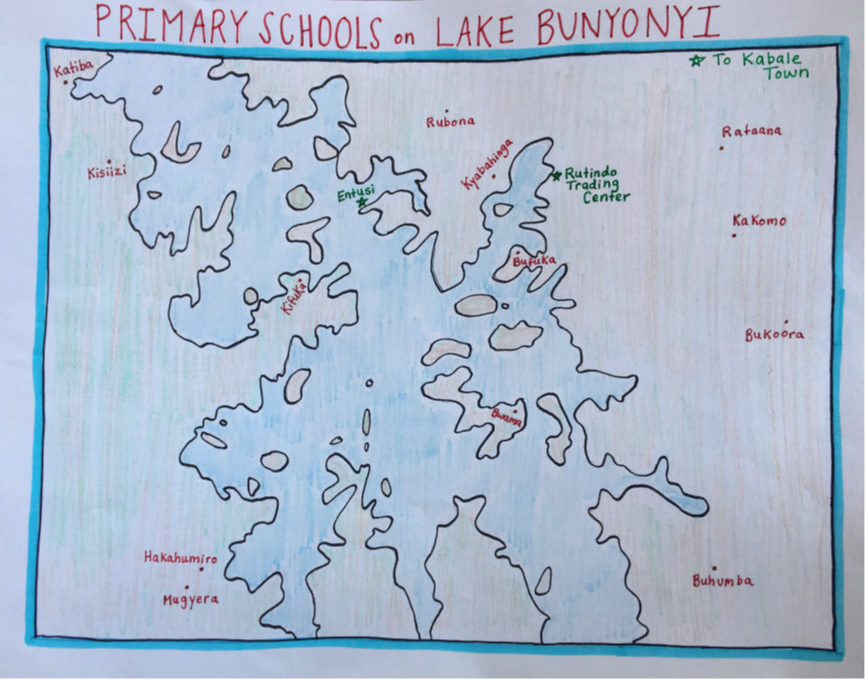 PRIMARY SCHOOLS on LAKE BUNYONYI
To Kabale
Town
Katiba
Rubona
Rataana
Kisiizi
Kyabahinga
Rutindo
Trading
Center
Entusi
Kakomo
Bufuka
Kifuka
Bukoora
Bwama
Hakahumiro
Mugyera
Buhumba